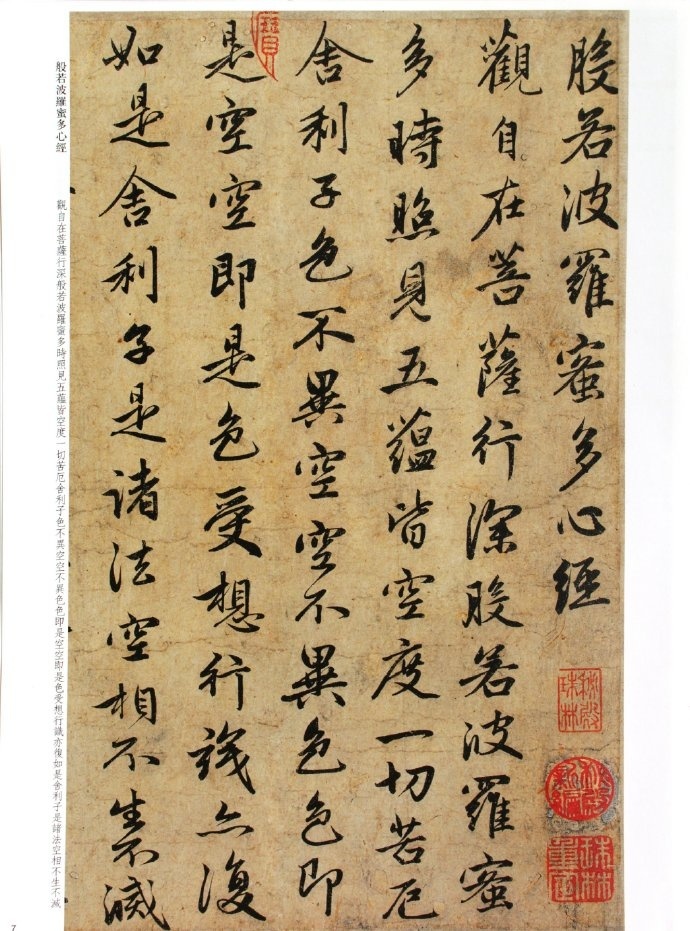 般若波羅蜜多心經
觀自在菩薩行深般若波羅蜜
多時照見五蘊皆空度一切苦厄
舍利子色不異空空不異色色即
是空空即是色受想行識亦復
如是舍利子是諸法空相不生不滅
般若波羅蜜多心經
觀自在菩薩行深般若波羅蜜多時照見五蘊皆空度一切苦厄舍利子色不異空空不異色色即是空空即是色受想行識亦復如是舍利子是諸法空相不生不滅
7